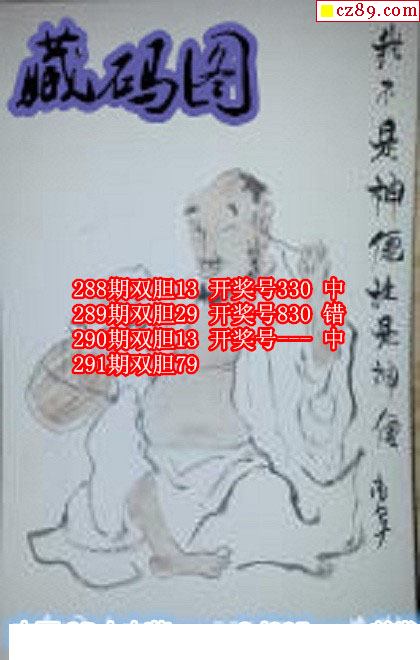 cz89.com
藏码图
我不是神便杜是神便
288期双胆13 开奖号330 中
289期双胆29 开奖号830 错
290期双胆13 开奖号--- 中
291期双胆79